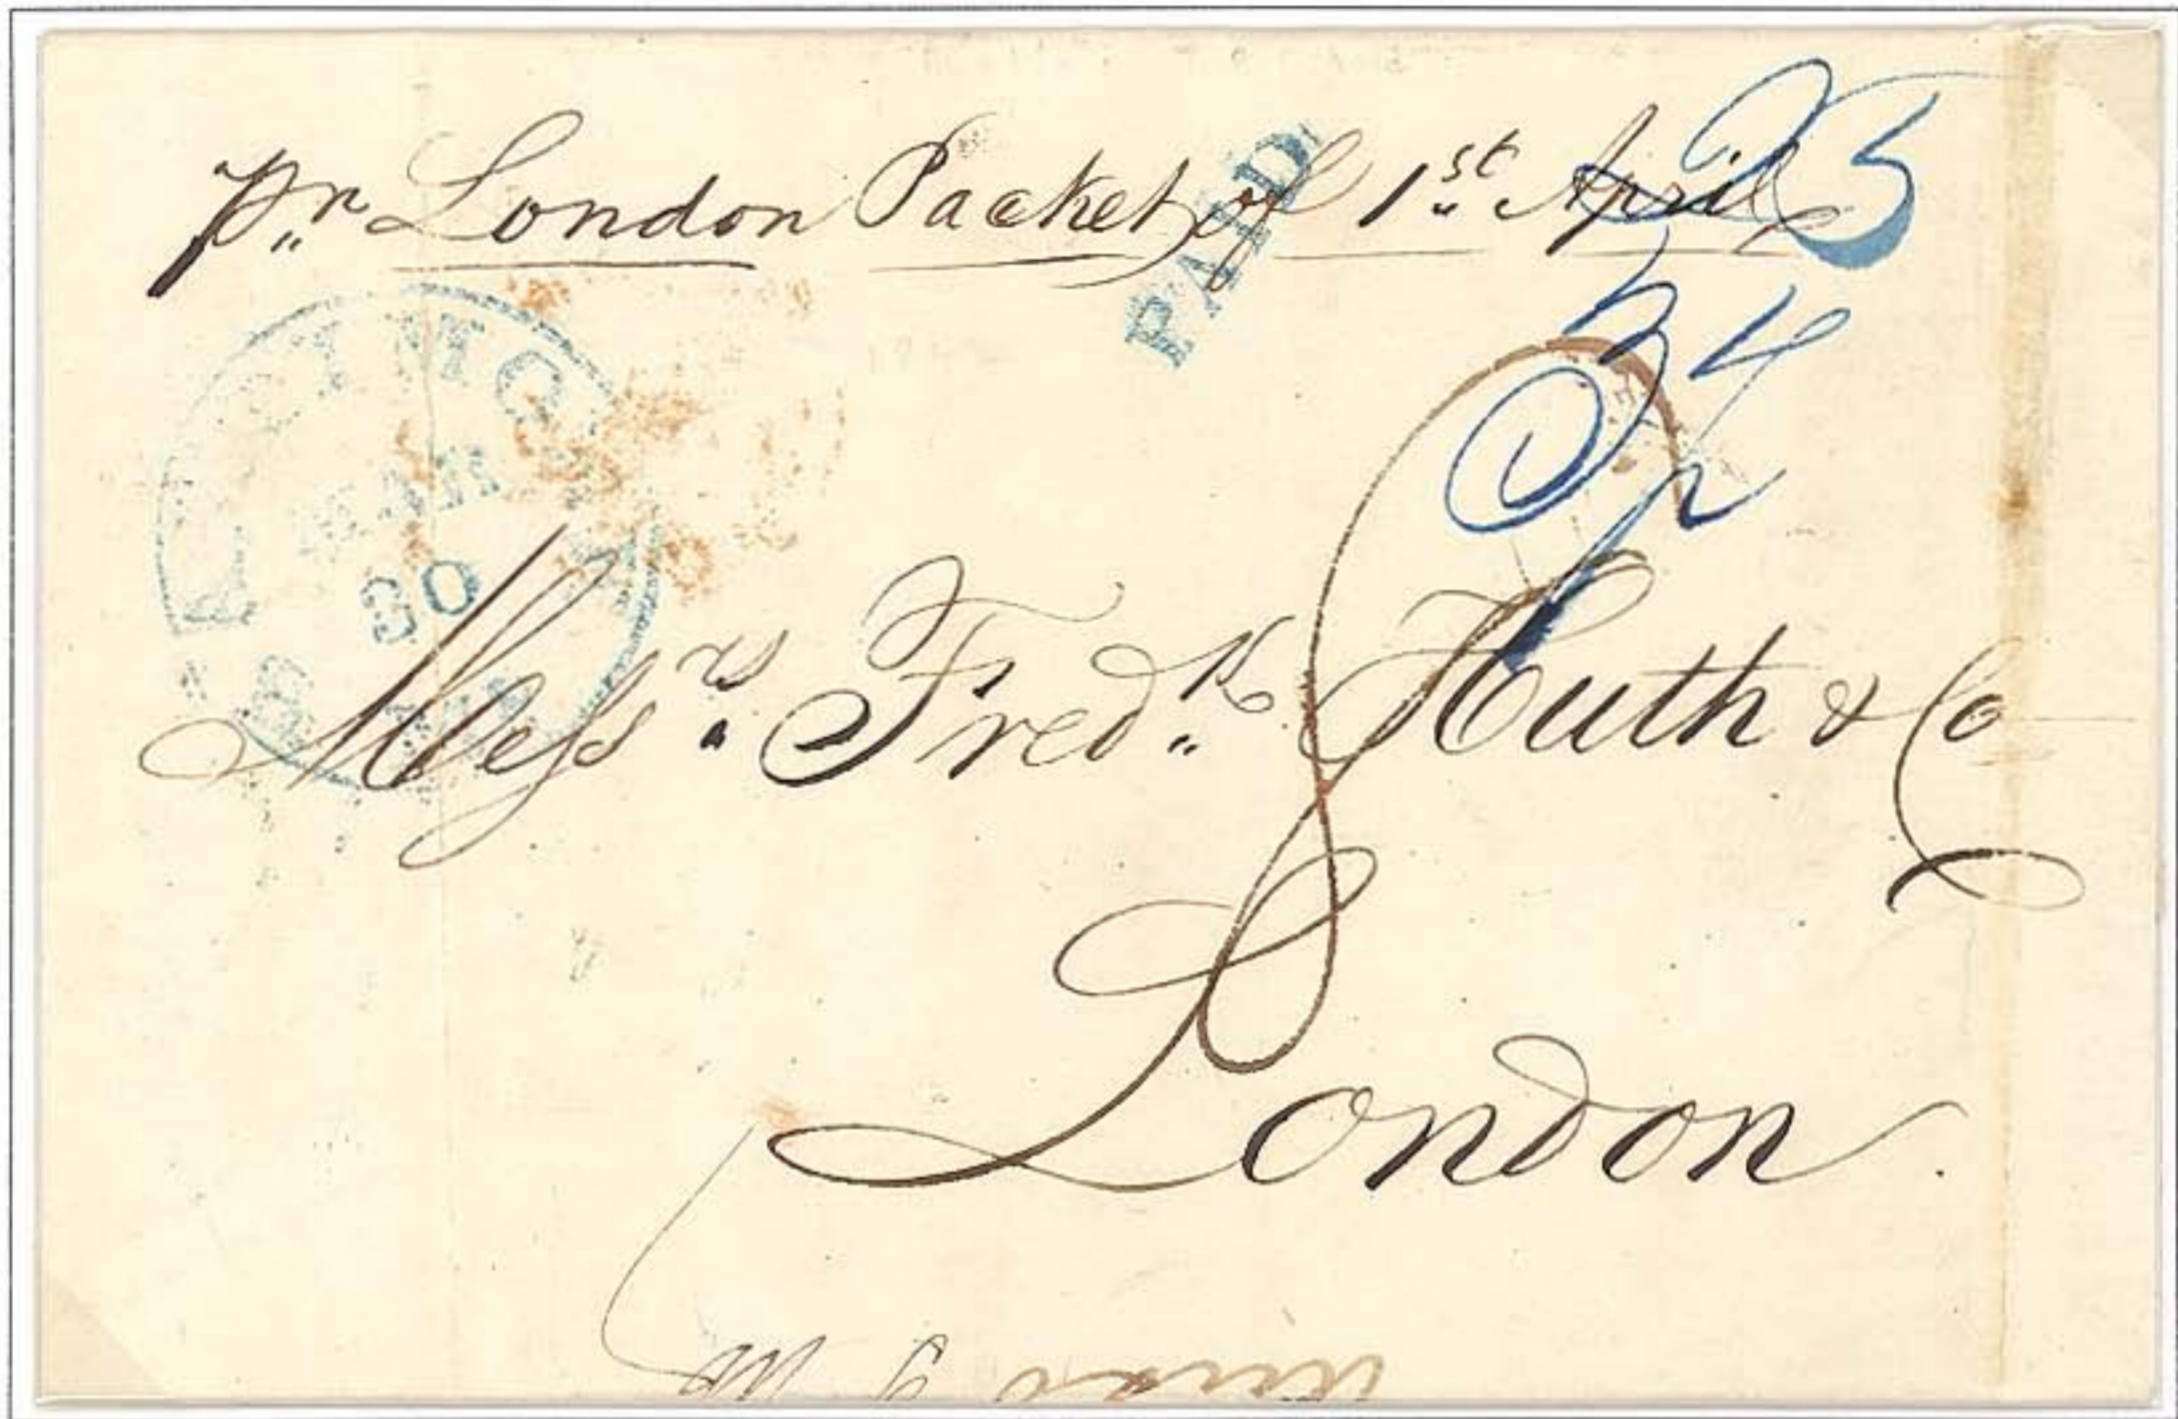 pr London Packet of 1st April
PAID
25
34½
MAR
30
Messrs. Fredk. Huth & Co
8
London.